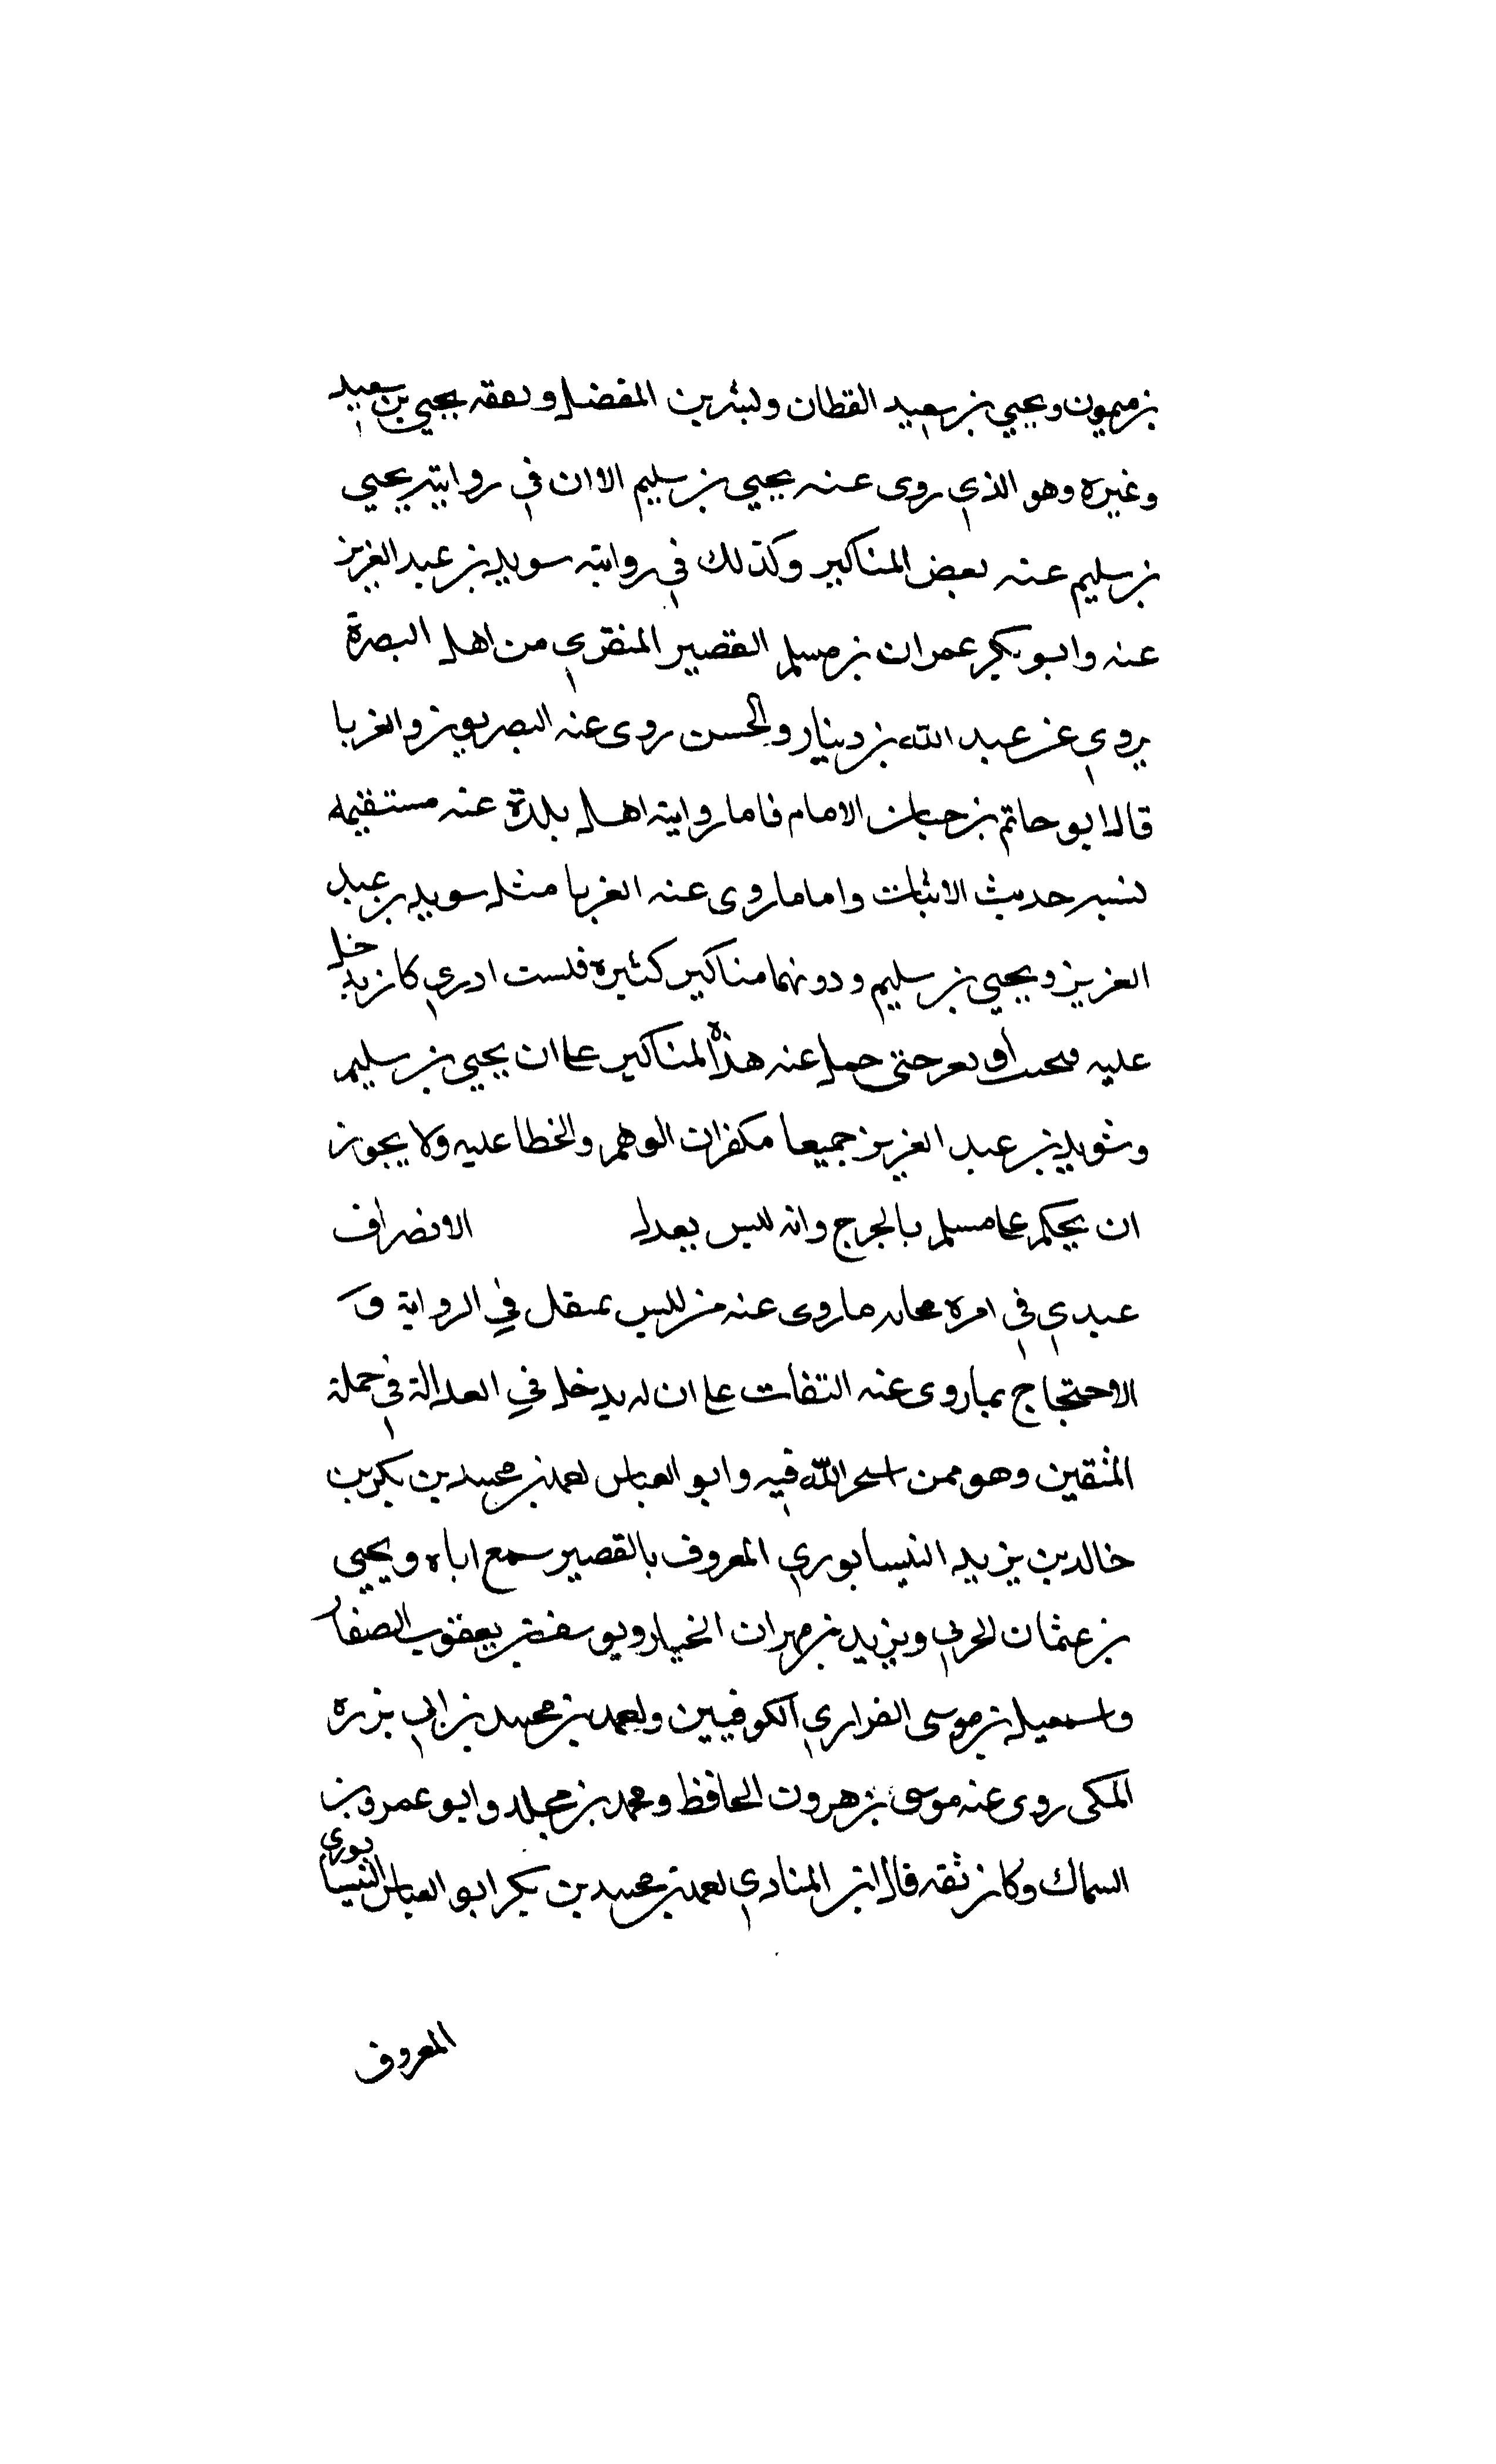 بن ميمون ويحيي بن سعيد القطان وبشر بن المفضل وثقه يحيي بن سعيد
وغيره وهو الذي روى عنه يحيي بن سليم الا ان في رواية يحيي
بن سليم عنه بعض المناكير وكذلك في رواية سويد بن عبد العزيز
عنه وابو بكر عمران بن مسلم القصير المنقري من اهل البصرة
يروي عن عبد الله بن دينار والحسن روى عنه البصريون والغربا
قال ابو حاتم بن حبان الامام فاما رواية اهل بلدة عنه مستقيمه
تشبه حديث الاثبات واما ما روى عنه الغربا مثل سويد بن عبد
العزيز ويحيي بن سليم ودونهما مناكير كثيره فلست ادري كان يدخل
عليه فيجيب او تغير حتى حمل عنه هذه المناكير على ان يحيي بن سليم
وشويد بن عبد العزيز جميعا مكثران الوهم والخطا عليه ولا يجوز
ان يحكم على مسلم بالجرح وانه ليس بعدل الانصراف
عندي في امره مجانبه ما روى عنه من ليس بمتقن في الرواية و
الاحتجاج بما روى عنه الثقات على ان له يدخل في العدالة في جملة
المتقين وهو ممن استخير الله فيه وابو العباس احمد بن محمد بن بكر بن
خالد بن يزيد النيسابوري المعروف بالقصير سمع اباه ويحيي
بن عثمان الحربي ويزيد بن مهران الخباز ويوسف بن يعقوب الصفار
واسمعيل بن موسى الفزاري الكوفيين واحمد بن محمد بن ابي بزره
المكى روى عنه موسى بن هرون الحافظ ومحمد بن مخلد وابو عمرو بن
السماك وكان ثقه قال ابن المنادي احمد بن محمد بن بكر ابو العباس النيسابوري
المعروف